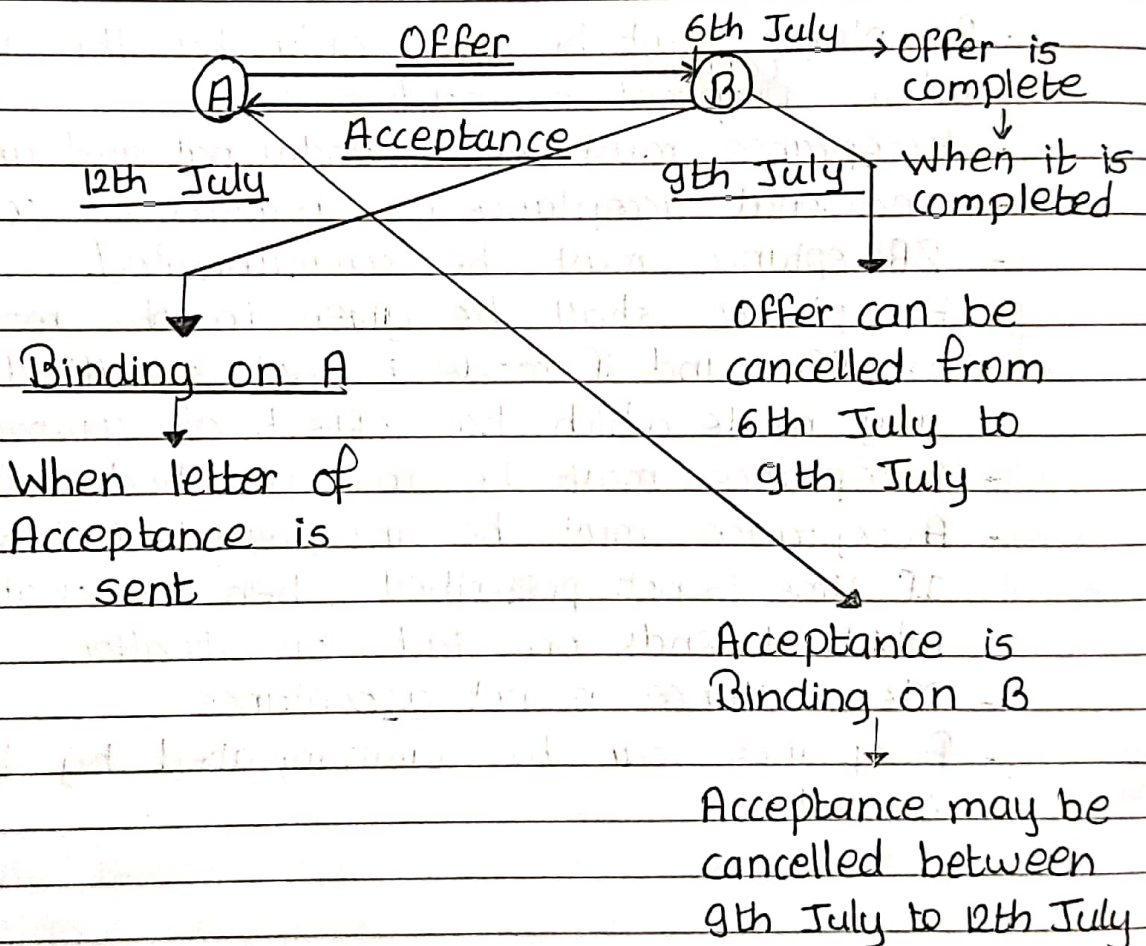 Offer
6th July
Offer is
complete
A
B
Acceptance
When it is
completed
12th July
9th July
Offer can be
cancelled from
6th July to
9th July
Binding on A
When letter of
Acceptance is
sent
Acceptance is
Binding on B
Acceptance may be
cancelled between
9th July to 12th July